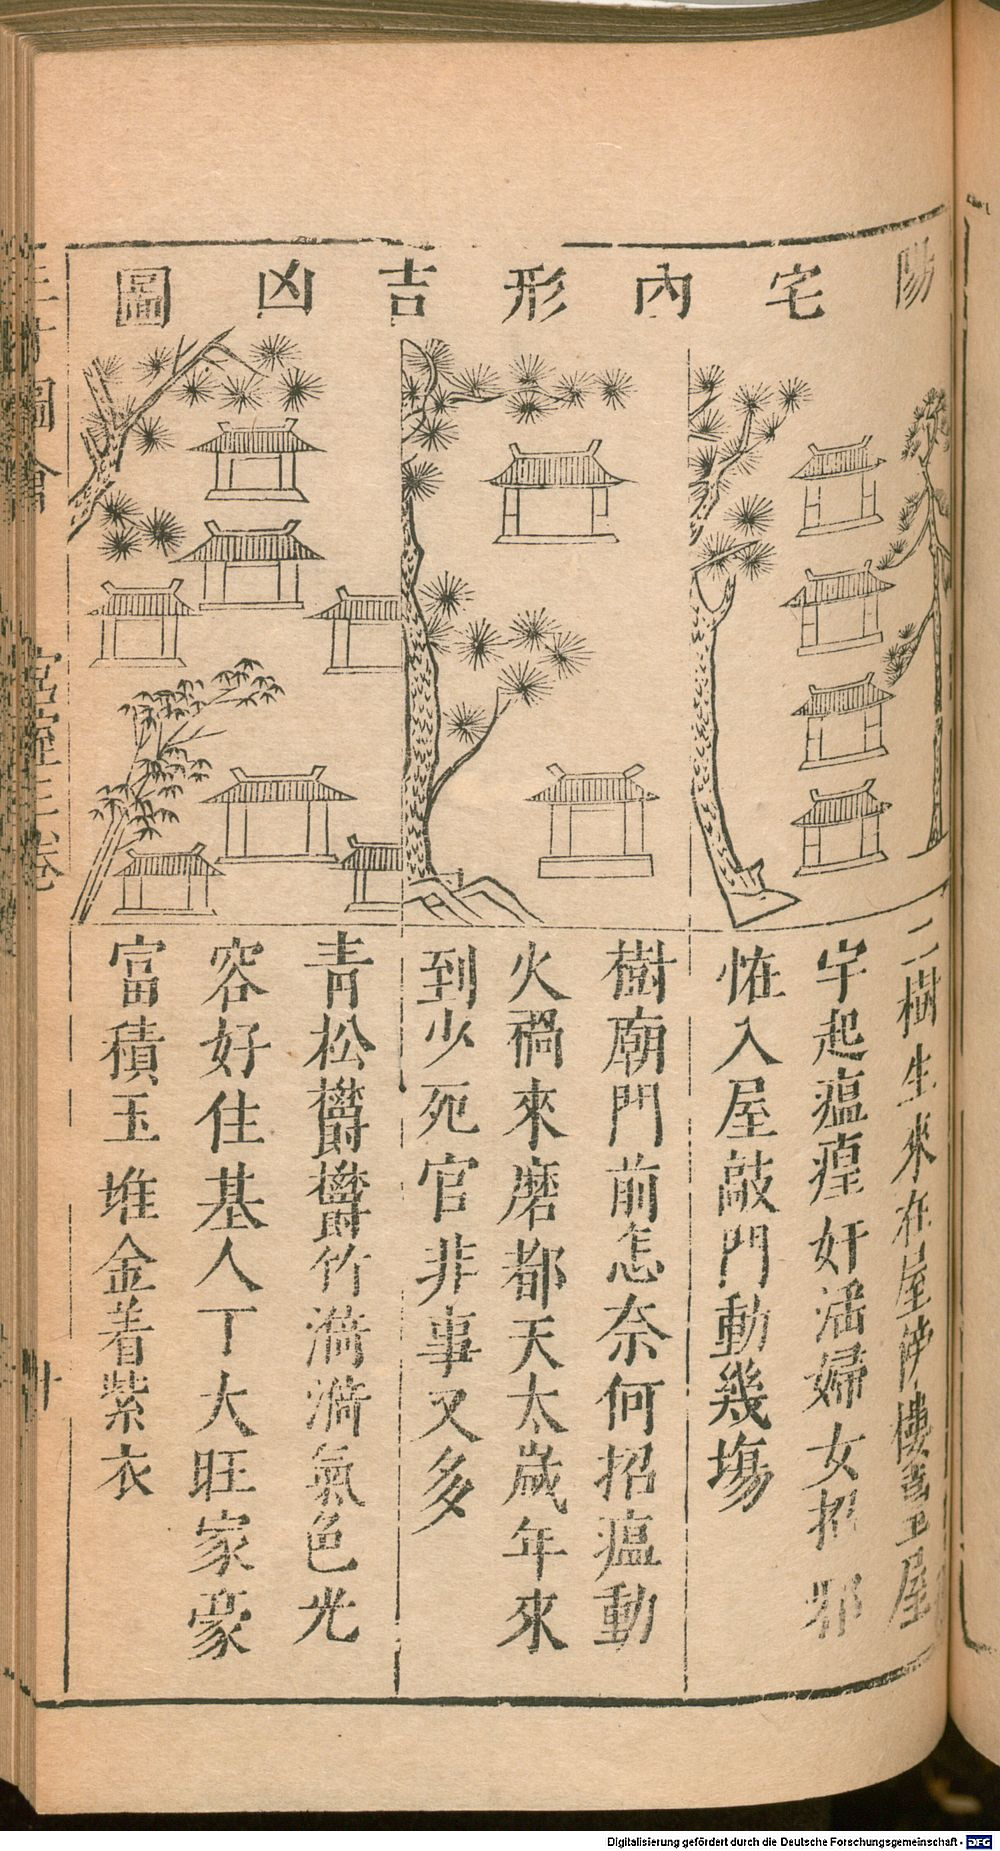 陽宅內形吉凶圖
二樹生來在屋傍樓臺至屋
宇起瘟㾮奸淫婦女招邪
恠入屋敲門動幾塲
樹廟門前怎奈何招瘟動
火禍來磨都天太歲年來
到少死官非事又多
青松欝欝竹漪漪氣色光
容好住基人丁大旺家豪
富積玉堆金着紫衣
圖會
宮室三卷
Digitalisierung gefördert durch die Deutsche Forschungsgemeinschaft - DFG